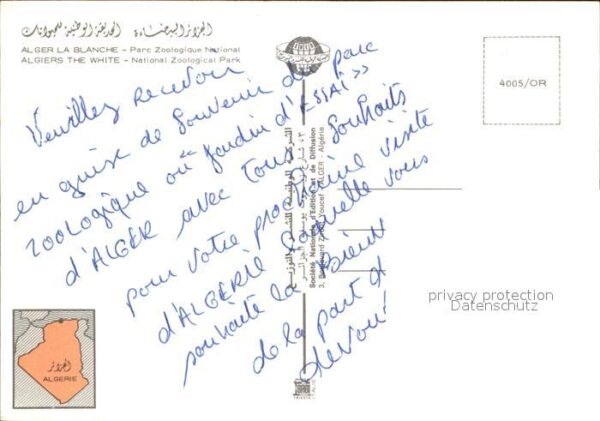 الجزائر البيضاء الحديقة الوطنية للحيوانات
ALGER LA BLANCHE – Parc Zoologique National
ALGIERS THE WHITE – National Zoological Park
4005/OR
Veuillez recevoir
en guise de souvenir du parc
zoologique où "Jardin d'ESSAÎ >>
d'ALGER avec tous souhaits
pour votre prochaine visite
d'ALGÉRIE laquelle vous
souhaite la bien
de la part d
Société Nationale d'Edition et de Diffusion
3, Boulevard Zirout Youcef - ALGER - Algérie
الشركة الوطنية للنشر والتوزيع
privacy protection
Datenschutz
الجزائر
ALGERIE